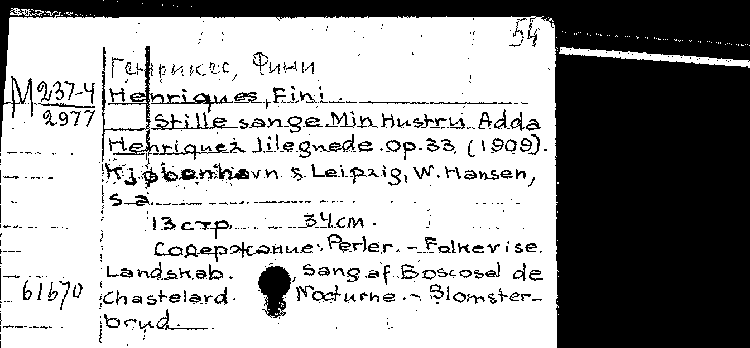 54
Генрикес, Фини
М 237-4
2977
Henriques, Fini.
Stille sange. Min Hustru Adda
Henriquez lilegnede. Op. 33 (1909).
Kjøbenhavn & Leipzig, W. Hansen,
s a
13 стр. 34 см.
Содержание: Perler. - Folkevise.
Landskab. Sang af Boscosel de
61670
Chastelard. Nocturne. - Blomster-
brud.